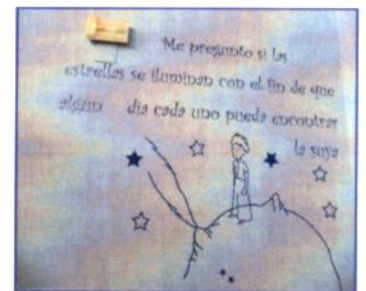 Me pregunto si las
estrellas se iluminan con el fin de que
algún día cada uno pueda encontrar
la suya